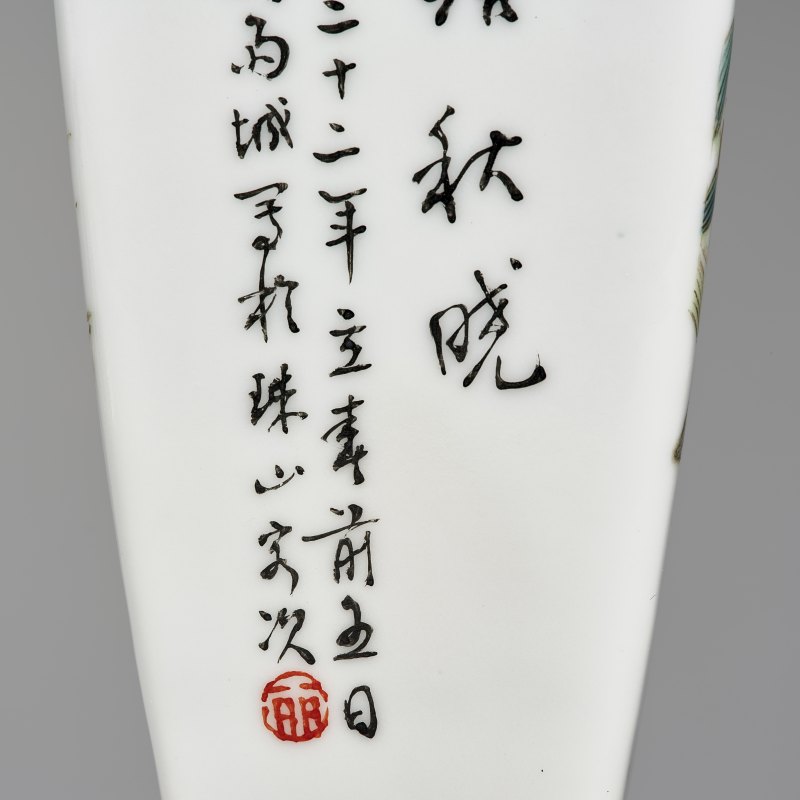 秋晓
三十二年立春前五日
雨城写於珠山客次